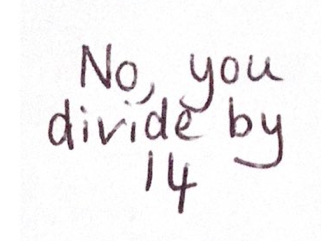 No, you
divide by
14